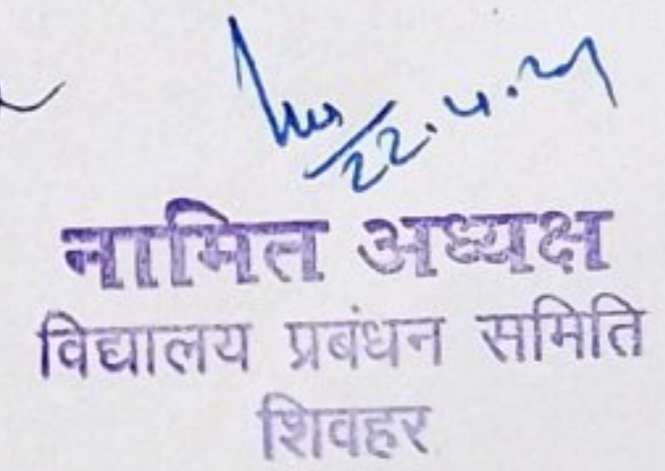 22.4.21
नामित अध्यक्ष
विद्यालय प्रबंधन समिति
शिवहर